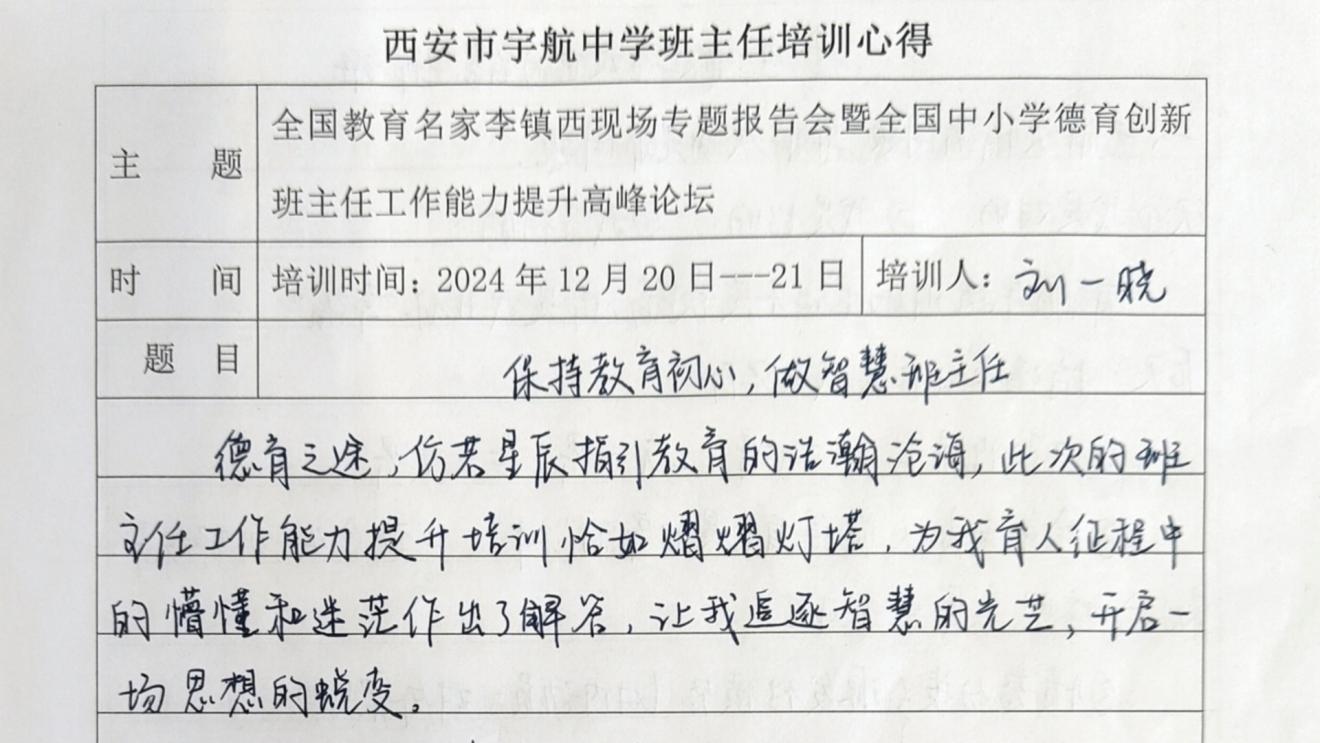 西安市宇航中学班主任培训心得
主 题
全国教育名家李镇西现场专题报告会暨全国中小学德育创新
班主任工作能力提升高峰论坛
时 间
培训时间：2024 年 12 月 20 日---21 日
培训人：刘一晓
题 目
保持教育初心，做智慧班主任
德育之途，仿若星辰指引教育的浩瀚沧海，此次的班
主任工作能力提升培训恰如熠熠灯塔，为我育人征程中
的懵懂和迷茫作出了解答，让我追逐智慧的光芒，开启一
场思想的蜕变。